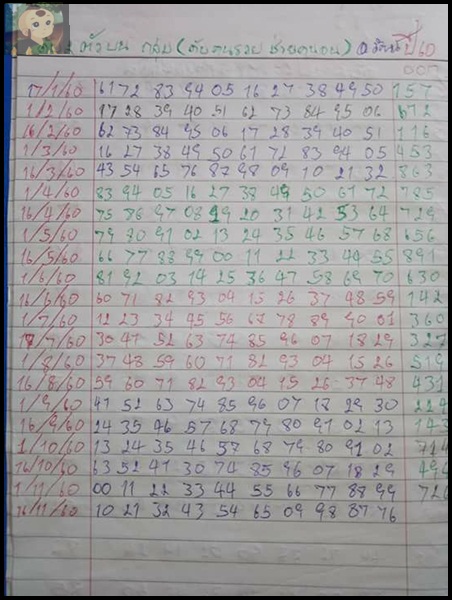 2 ตัวบน กลม (คับคนรวย ช่วยคนจน) ปี 60
17/1/60 61 72 83 94 05 16 27 38 49 50 157
1/2/60 17 28 39 40 51 62 73 84 95 06 612
16/2/60 62 73 84 95 06 17 28 39 40 51 116
1/3/60 16 27 38 49 50 61 72 83 94 05 453
16/3/60 43 54 65 76 87 98 09 10 21 32 863
1/4/60 83 94 05 16 27 38 49 50 61 72 785
16/4/60 75 86 97 08 19 20 31 42 53 64 729
1/5/60 79 80 91 02 13 24 35 46 57 68 656
16/5/60 66 77 88 99 00 11 22 33 44 55 891
1/6/60 81 92 03 14 25 36 47 58 69 70 630
16/6/60 60 71 82 93 04 15 26 37 48 59 142
1/7/60 12 23 34 45 56 67 78 89 90 01 360
17/7/60 30 41 52 63 74 85 96 07 18 29 327
1/8/60 37 48 59 60 71 82 93 04 15 26 519
16/8/60 59 60 71 82 93 04 15 26 37 48 431
1/9/60 41 52 63 74 85 96 07 18 29 30
16/9/60 24 35 46 57 68 79 80 91 02 13 143
1/10/60 13 24 35 46 57 68 79 80 91 02
16/10/60 63 52 41 30 74 85 96 07 18 29
1/11/60 00 11 22 33 44 55 66 77 88 99
16/11/60 10 21 32 43 54 65 09 98 87 76